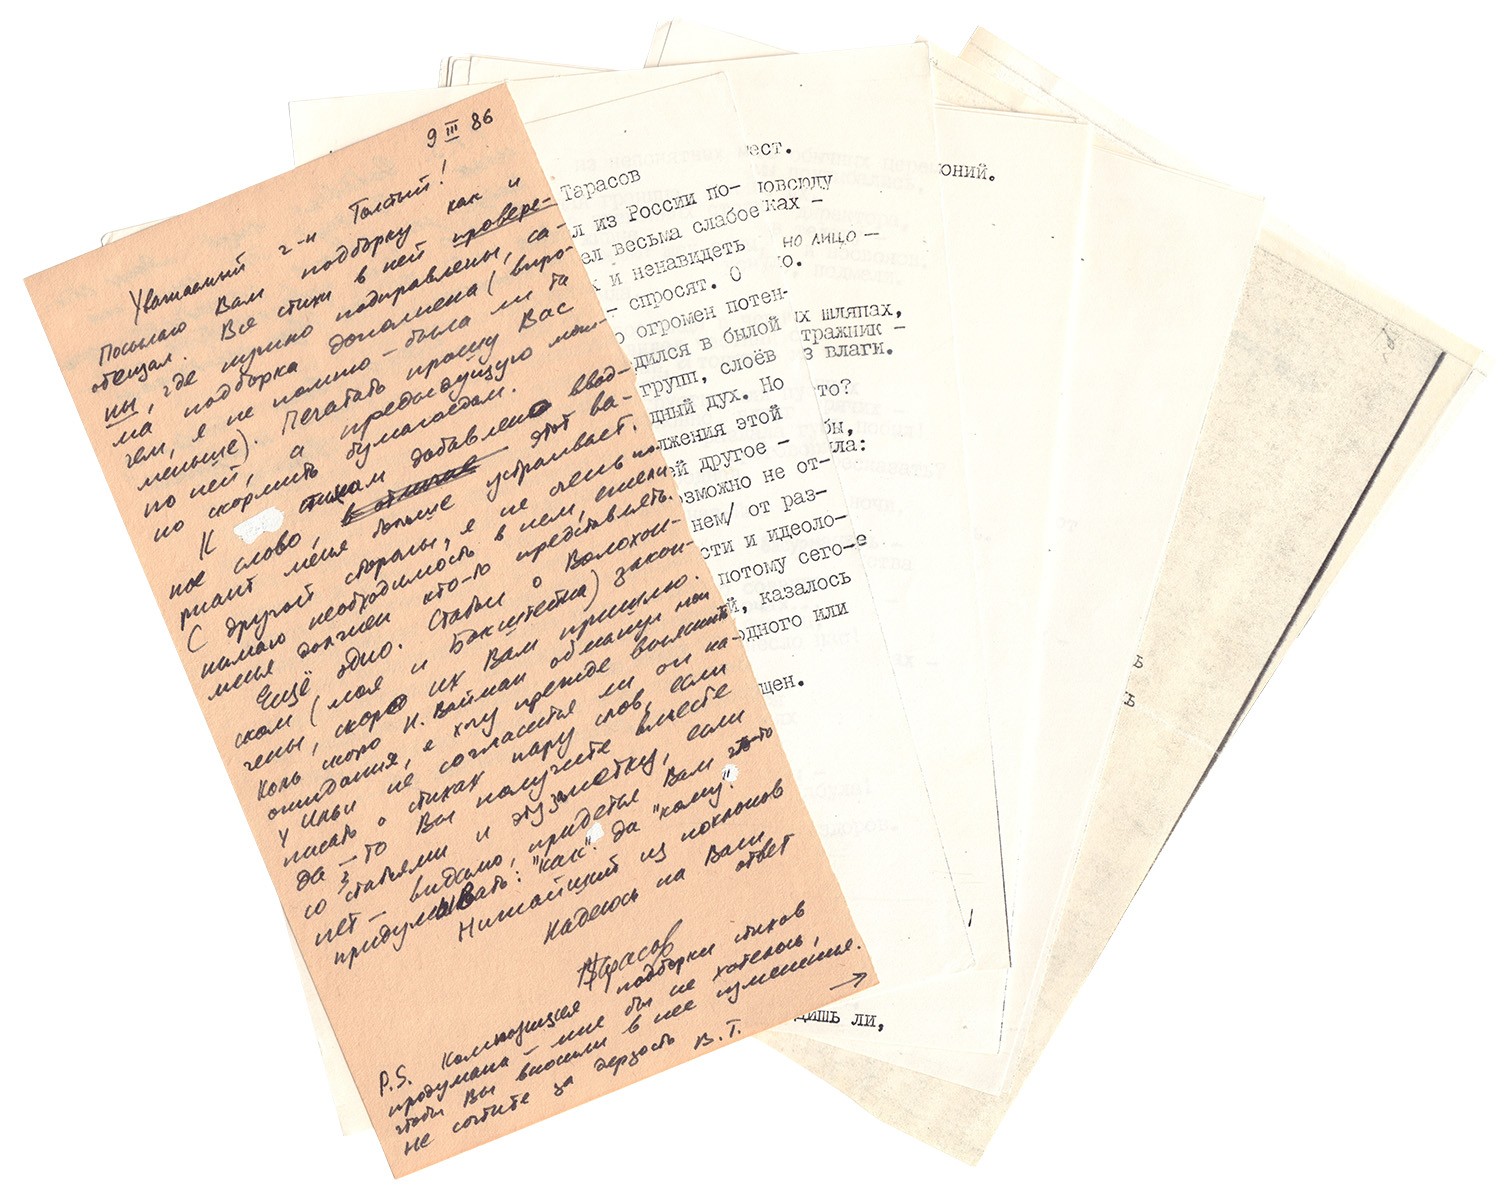 9 III 86
Уважаемый г-н Толстый!
Посылаю Вам подборку как и
обещал. Все стихи в ней провере-
ны, где нужно подправлены, са-
ма подборка дополнена (впро-
чем, я не помню - была ли та
меньше). Печатать прошу Вас
по ней, а предыдущую мож-
но скормить бумагоедам.
К стихам добавлено ввод-
ное слово, этот ва-
риант меня больше устраивает.
С другой стороны, я не очень по-
нимаю необходимость в нем, ежели
меня должен кто-то представлять.
Ещё одно. Статьи о Волохон-
ском (моя и Бокштейна) закон-
чены, скоро их Вам пришлю.
Коль скоро Н. Вайман обманул мои
ожидания, я хочу прежде выяснить
у Ильи не согласится ли он на-
писать о стихах пару слов, если
да - то Вы получите вместе
со статьями и эту заметку, если
нет - видимо, придётся Вам что-то
придумывать: "как" да "кому".
Нижайший из поклонов
Надеюсь на Ваш
ответ
Тарасов
P.S. Композиция подборки стихов
продумана - мне бы не хотелось,
чтобы Вы вносили в нее изменения.
Не сочтите за дерзость В.Т. →
Тарасов
л из России по-
ел весьма слабое
к и ненавидеть
- спросят. О
о огромен потен-
дился в былой
групп, слоёв
дный дух. Но
лжения этой
ей другое -
зможно не от-
нем/ от раз-
сти и идеоло-
потому сего-
й, казалось
одного или
щен.
ест.
овсюду
ках -
но лицо -
ю.
ых шляпах,
тражник -
з влаги.
то?
бы,
ла:
е
дишь ли,
оний.
от
ь
ь